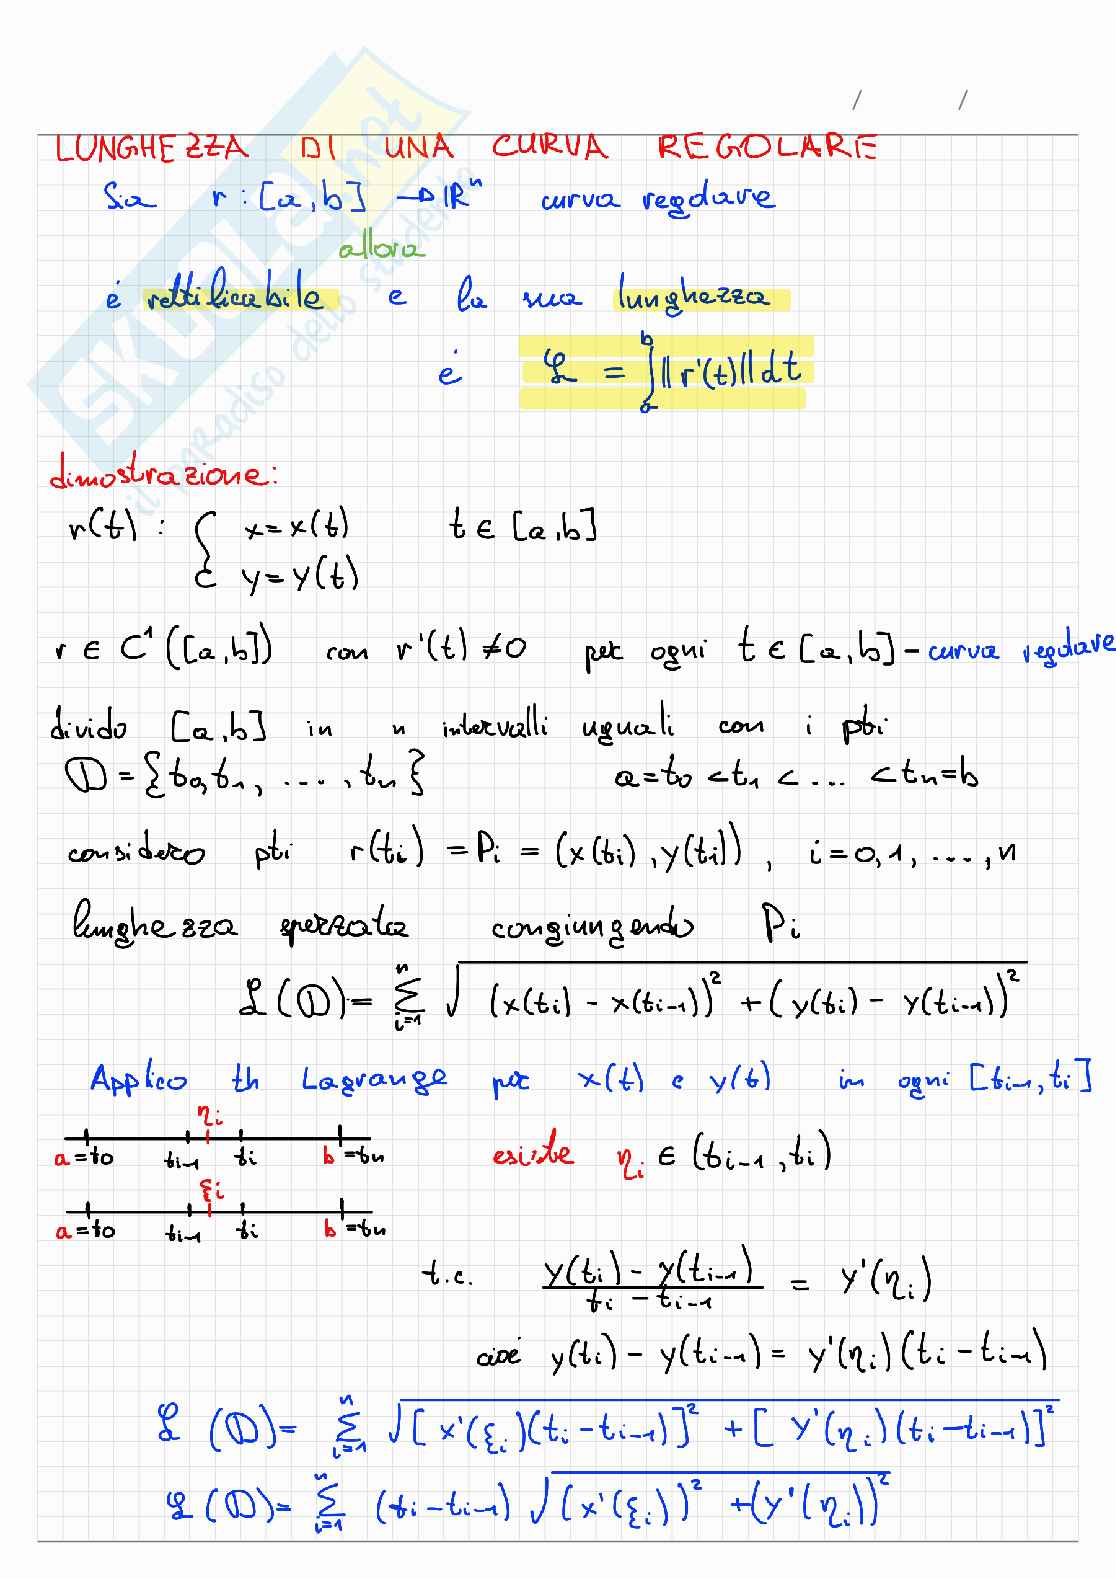 / /
LUNGHEZZA DI UNA CURVA REGOLARE
Sia r : [a,b] → ℝⁿ curva regolare
allora
é rettificabile e la sua lunghezza
é ℒ = ∫ₐᵇ ‖r'(t)‖ dt
dimostrazione:
r(t) : { x = x(t) t ∈ [a,b]
y = y(t)
r ∈ C¹([a,b]) con r'(t) ≠ 0 per ogni t ∈ [a,b] - curva regolare
divido [a,b] in n intervalli uguali con i pti
𝔻 = {t₀, t₁, ..., tₙ} a = t₀ < t₁ < ... < tₙ = b
considero pti r(tᵢ) = Pᵢ = (x(tᵢ), y(tᵢ)), i = 0, 1, ..., n
lunghezza spezzata congiungendo Pᵢ
ℒ(𝔻) = Σᵢ₌₁ⁿ √((x(tᵢ) - x(tᵢ₋₁))² + (y(tᵢ) - y(tᵢ₋₁))²)
Applico th Lagrange per x(t) e y(t) in ogni [tᵢ₋₁, tᵢ]
ηᵢ
a = t₀ tᵢ₋₁ tᵢ b = tₙ esiste ηᵢ ∈ (tᵢ₋₁, tᵢ)
ξᵢ
a = t₀ tᵢ₋₁ tᵢ b = tₙ
t.c. (y(tᵢ) - y(tᵢ₋₁)) / (tᵢ - tᵢ₋₁) = y'(ηᵢ)
cioé y(tᵢ) - y(tᵢ₋₁) = y'(ηᵢ)(tᵢ - tᵢ₋₁)
ℒ(𝔻) = Σᵢ₌₁ⁿ √([x'(ξᵢ)(tᵢ - tᵢ₋₁)]² + [y'(ηᵢ)(tᵢ - tᵢ₋₁)]²)
ℒ(𝔻) = Σᵢ₌₁ⁿ (tᵢ - tᵢ₋₁) √((x'(ξᵢ))² + (y'(ηᵢ))²)
SKUOLA.net
il paradiso dello studente